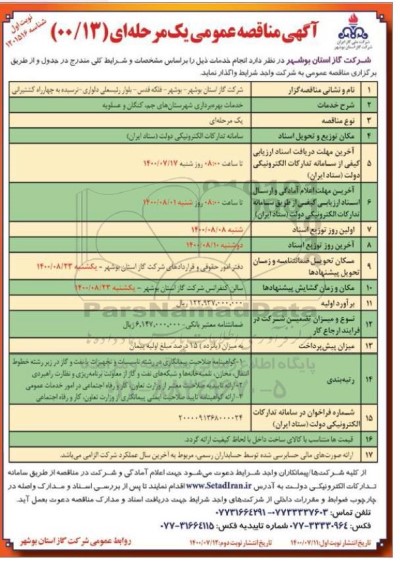 آگهی مناقصه عمومی یک مرحله‌ای (۰۰/۱۳)
نوبت اول
شناسه ۱۲۰۱۵۱۶
شرکت گاز استان بوشهر در نظر دارد انجام خدمات ذیل را براساس مشخصات و شرایط کلی مندرج در جدول و از طریق
برگزاری مناقصه عمومی به شرکت واجد شرایط واگذار نماید.
۱ نام و نشانی مناقصه‌گزار شرکت گاز استان بوشهر - بوشهر - فلکه قدس - بلوار رئیسعلی دلواری - نرسیده به چهارراه کشتیرانی
۲ شرح خدمات خدمات بهره‌برداری شهرستان‌های جم، کنگان و عسلویه
۳ نوع مناقصه یک مرحله‌ای
۴ مکان توزیع و تحویل اسناد سامانه تدارکات الکترونیکی دولت (ستاد ایران)
۵ آخرین مهلت دریافت اسناد ارزیابی کیفی از سامانه تدارکات الکترونیکی دولت (ستاد ایران) تا ساعت ۰۸:۰۰ روز شنبه ۱۴۰۰/۰۷/۱۷
۶ آخرین مهلت اعلام آمادگی و ارسال اسناد ارزیابی کیفی از طریق سامانه تدارکات الکترونیکی دولت (ستاد ایران) تا ساعت ۰۸:۰۰ روز شنبه ۱۴۰۰/۰۸/۰۱
۷ اولین روز توزیع اسناد شنبه ۱۴۰۰/۰۸/۰۸
۸ آخرین روز توزیع اسناد دوشنبه ۱۴۰۰/۰۸/۱۰
۹ مکان تحویل ضمانتنامه و زمان تحویل پیشنهادها دفتر امور حقوقی و قراردادهای شرکت گاز استان بوشهر - یکشنبه ۱۴۰۰/۰۸/۲۳
۱۰ مکان و زمان گشایش پیشنهادها سالن کنفرانس شرکت گاز استان بوشهر - یکشنبه ۱۴۰۰/۰۸/۲۳
۱۱ برآورد اولیه ۱۲۲,۹۳۷,۰۰۰,۰۰۰ ریال
۱۲ نوع و میزان تضمین شرکت در فرایند ارجاع کار ضمانتنامه معتبر بانکی: ۶,۱۴۷,۰۰۰,۰۰۰ ریال
۱۳ میزان پیش‌پرداخت به میزان (پانزده) ۱۵ درصد مبلغ اولیه پیمان
۱۴ رتبه‌بندی
۱۵ شماره فراخوان در سامانه تدارکات الکترونیکی دولت (ستاد ایران) ۲۰۰۰۰۹۱۳۶۸۰۰۰۰۲۴
۱۶ قیمت ها متناسب با کالای ساخت داخل با لحاظ کیفیت ارائه گردد.
۱۷ ارائه صورت‌های مالی حسابرسی شده توسط حسابداران رسمی، مربوط به آخرین سال عملکرد شرکت الزامی می‌باشد.
از کلیه شرکت‌ها/پیمانکاران واجد شرایط دعوت می‌شود جهت اعلام آمادگی و شرکت در مناقصه از طریق سامانه
تدارکات الکترونیکی دولت به آدرس www.SetadIran.ir اقدام نمایند تا پس از بررسی اسناد و مدارک واصله در
چارچوب ضوابط و مقررات داخلی از شرکت‌های واجد شرایط جهت دریافت اسناد و مدارک مناقصه دعوت بعمل آید.
تلفن تماس: ۰۷۷۳۳۳۳۷۶۰۳ - ۰۷۷۳۱۶۶۴۲۹۱
فکس: ۳۳۳۳۰۹۶۴-۰۷۷ شماره تاییدیه فکس: ۳۱۶۶۴۱۱۵-۰۷۷
تاریخ انتشار نوبت اول: ۱۴۰۰/۰۷/۱۱ تاریخ انتشار نوبت دوم: ۱۴۰۰/۰۷/۱۲
روابط عمومی شرکت گاز استان بوشهر
ParsNamadData